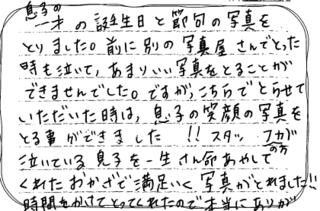 息子の
一才の誕生日と節句の写真を
とりました。前に別の写真屋さんでとった
時も泣いて、あまりいい写真をとることが
できませんでした。ですが、こちらでとらせて
いただいた時は、息子の笑顔の写真を
とる事ができました!!スタッフの方が
泣いている息子を一生けん命あやして
くれたおかげで満足いく写真がとれました!!
時間をかけてとってくれたので本当にありが